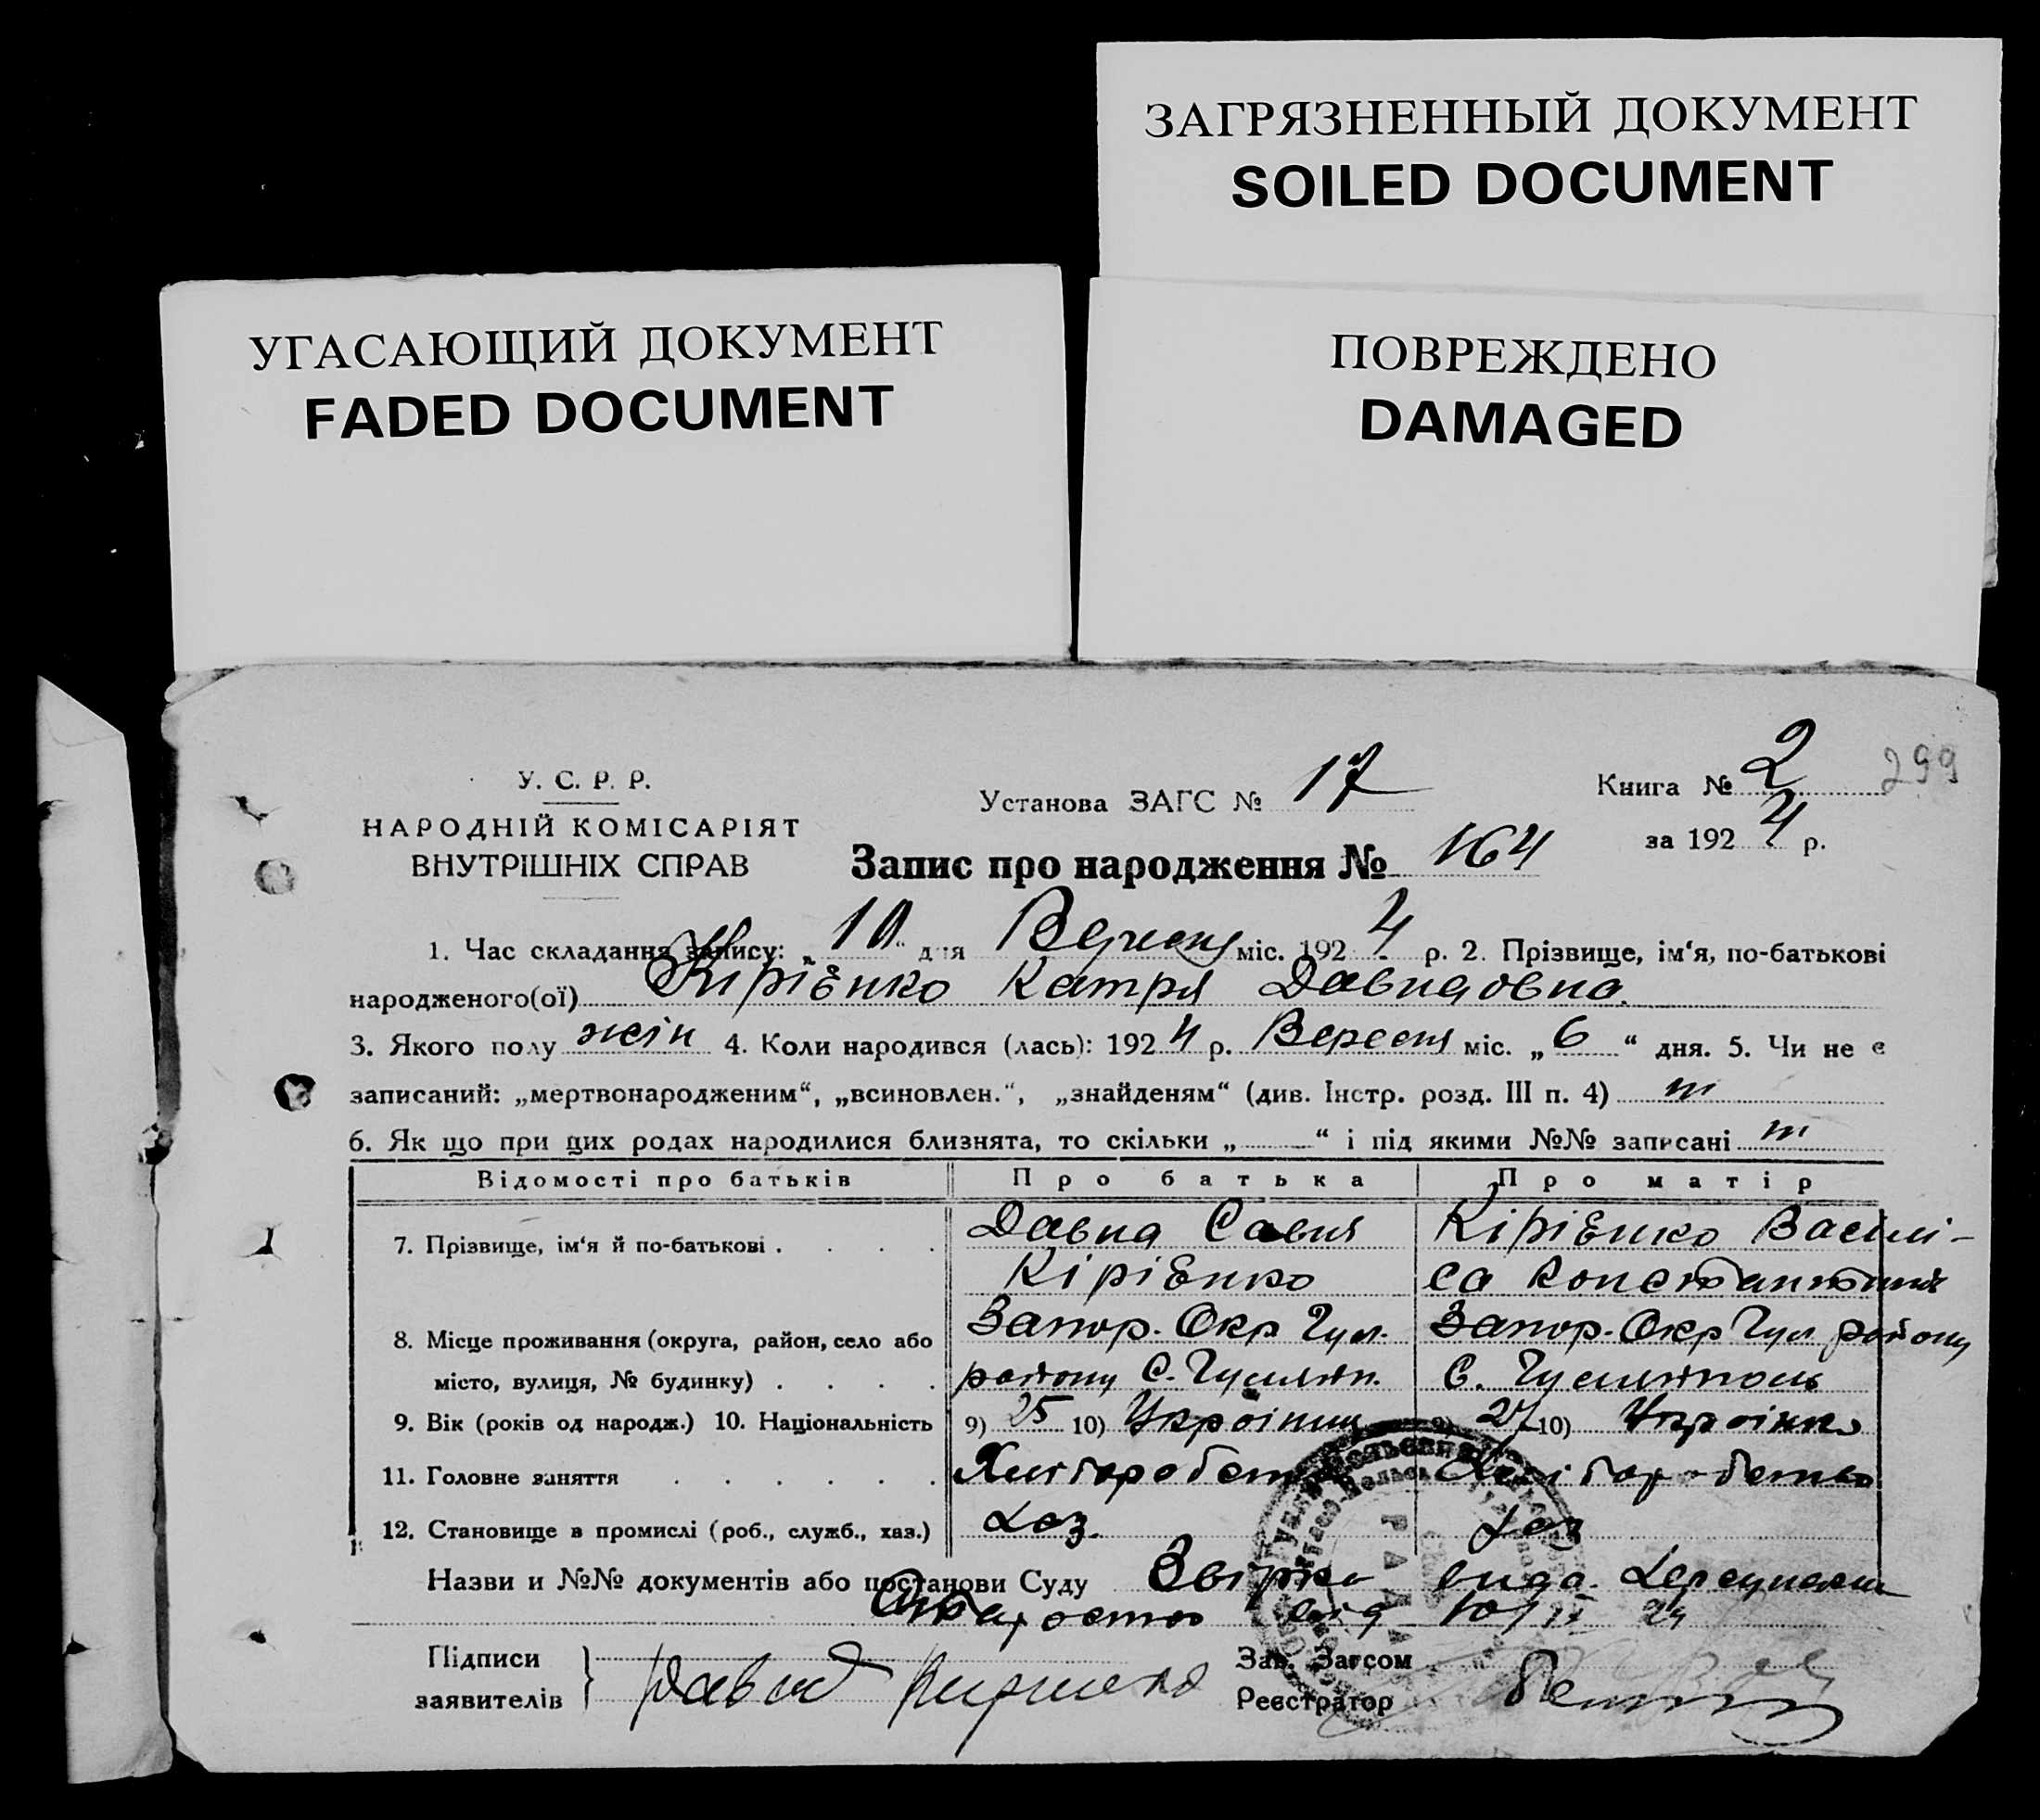 ЗАГРЯЗНЕННЫЙ ДОКУМЕНТ
SOILED DOCUMENT
УГАСАЮЩИЙ ДОКУМЕНТ
FADED DOCUMENT
ПОВРЕЖДЕНО
DAMAGED
У. С. Р. Р.
НАРОДНІЙ КОМІСАРІЯТ
ВНУТРІШНІХ СПРАВ
Установа ЗАГС № 17
Книга № 2
299
за 1924 р.
Запис про народження № 164
1. Час складання запису: „10“ дня Вересня міс. 1924 р. 2. Прізвище, ім‘я, по-батькові
народженого(ої) Кірієнко Катря Давидовна
3. Якого полу жін 4. Коли народився (лась): 1924 р. Вересня міс. „6“ дня. 5. Чи не є
записаний: „мертвонародженим“, „всиновлен.“, „знайденям“ (див. Інстр. розд. III п. 4)
6. Як що при цих родах народилися близнята, то скільки „ “ і під якими №№ записані
Відомості про батьків Про батька Про матір
7. Прізвище, ім‘я й по-батькові . . . . Давид Савич Кірієнко Васілі-
Кірієнко са
8. Місце проживання (округа, район, село або Запор. Окр Гул. Запор. Окр Гул району
місто, вулиця, № будинку) . . . . району С. С.
9. Вік (років од народж.) 10. Національність 9) 25 10) Українец 9) 10) Українка
11. Головне заняття . . . . . . Хліборобство Хліборобство
12. Становище в промислі (роб., служб., хаз.) Хаз. Хаз
Назви и №№ документів або постанови Суду
від 10/IX 24
Підписи
заявителів } Давид
Зав. Загсом
Реєстратор